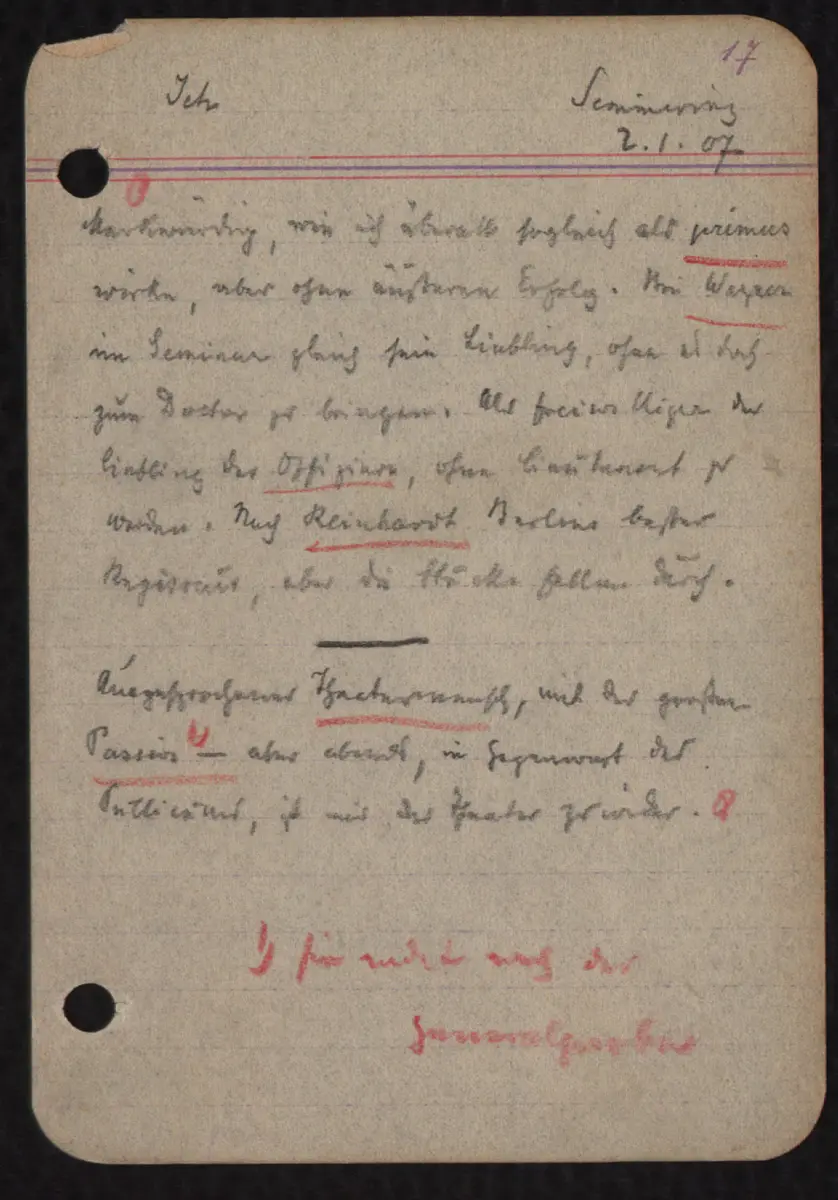 17
Ich
Semmering
2. 1. 07
Merkwürdig, wie ich überall sogleich als primus
wirke, aber ohne äußeren Erfolg. Bei Wagner
im Seminar gleich sein Liebling, ohne es doch
zum Doctor zu bringen. Als Freiwilliger der
Liebling der Offiziere, ohne Lieutenant zu
werden. Nach Reinhardt Berlins bester
Regisseur, aber die Stücke fallen durch.
Ausgesprochener Theatermensch, mit der großen
Passion 1) — aber abends, in Gegenwart des
Publicums, ist mir das Theater zuwider.
1) sie endet nach der
Generalprobe